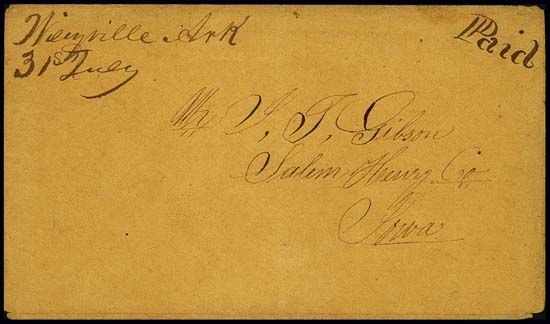 Ark
31st July
Paid
Mr J. T. Gibson
Salem Henry Co.
Iowa